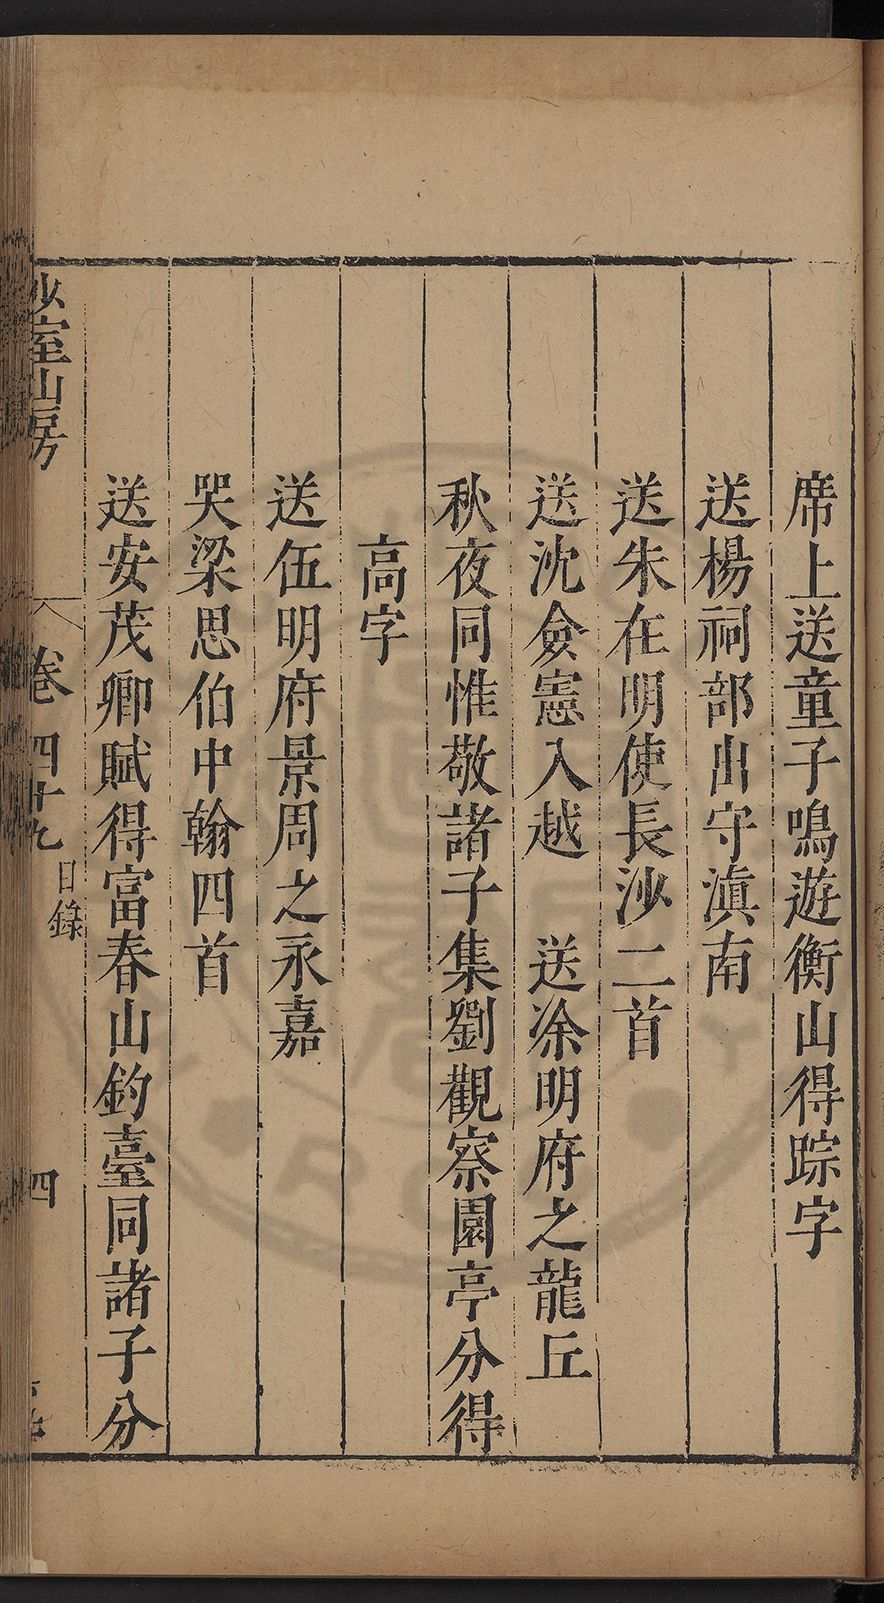 席上送童子鳴遊衡山得踪字
送楊祠部出守滇南
送朱在明使長沙二首
送沈僉憲入越　送凃明府之龍丘
秋夜同惟敬諸子集劉觀察園亭分得
高字
送伍明府景周之永嘉
哭梁思伯中翰四首
送安茂卿賦得富春山釣臺同諸子分
少室山房　卷四十九　目錄　四